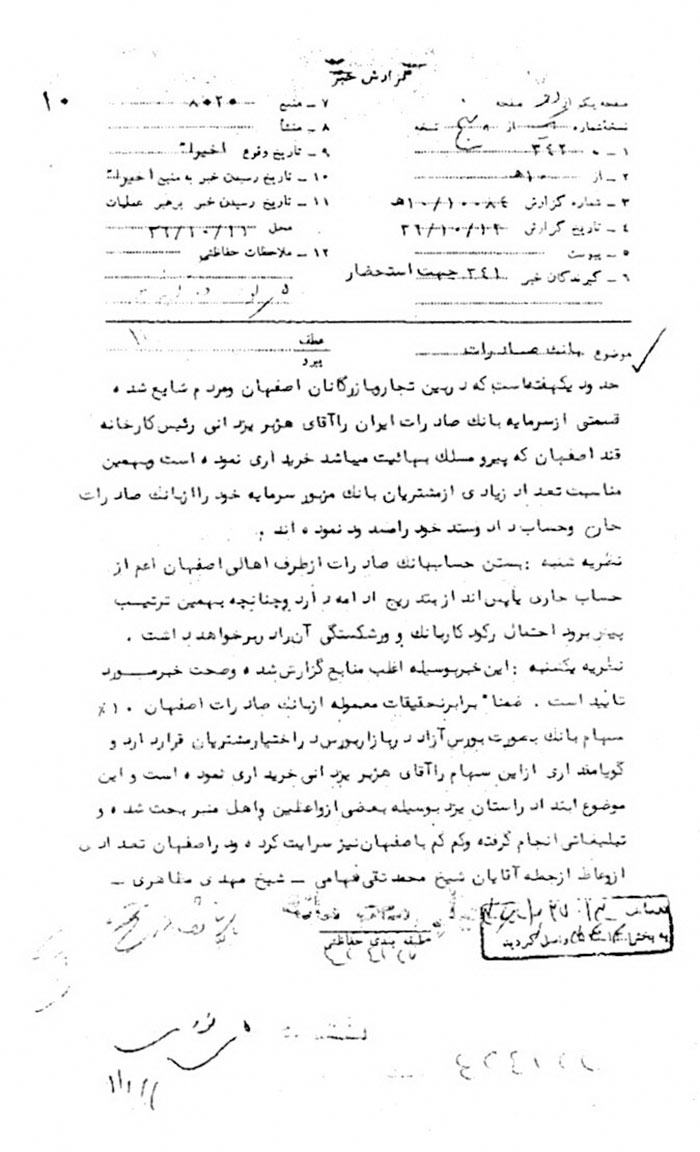 گزارش خبر
۱۰
صفحه یک از صفحه
۷ ـ منبع ۸۰۲۵
نسخه شماره از نسخه
۸ ـ منشأ
۱ ـ به ۳۴۲
۹ ـ تاریخ وقوع اخیراً
۲ ـ از ۱۰ه
۱۰ ـ تاریخ رسیدن خبر به منبع اخیراً
۳ ـ شماره گزارش ۱۰/۱۰۰۸۴ه
۱۱ ـ تاریخ رسیدن خبر برهبر عملیات
۴ ـ تاریخ گزارش
محل
۵ ـ پیوست
۱۲ ـ ملاحظات حفاظتی
۶ ـ گیرندگان خبر ۳۴۱ جهت استحضار
موضوع بانک صادرات
عطف
پیرو
حدود یکهفته است که در بین تجار و بازرگانان اصفهان و مردم شایع شده
قسمتی از سرمایه بانک صادرات ایران را آقای هژبر یزدانی رئیس کارخانه
قند اصفهان که پیرو مسلک بهائیت میباشد خریداری نموده است و بهمین
مناسبت تعداد زیادی از مشتریان بانک مزبور سرمایه خود را از بانک صادرات
وحساب داد وستد خود را مسدود نموده اند .
نظریه شنبه : بستن حساب بانک صادرات از طرف اهالی اصفهان اعم از
حساب جاری یا پس انداز بتدریج ادامه دارد و چنانچه بهمین ترتیب
پیش برود احتمال رکود کار بانک و ورشکستگی آن را در بر خواهد داشت .
نظریه یکشنبه : این خبر بوسیله اغلب منابع گزارش شده و صحت خبر مورد
تائید است . ضمناً برابر تحقیقات معموله از بانک صادرات اصفهان ۱۰٪
سهام بانک بصورت بورس آزاد در بازار بورس در اختیار مشتریان قرار دارد و
گویا مقداری از این سهام را آقای هژبر یزدانی خریداری نموده است و این
موضوع ابتدا در استان یزد بوسیله بعضی از واعظین و اهل منبر بحث شده و
تبلیغاتی انجام گرفته و کم کم باصفهان نیز سرایت کرده و در اصفهان تعدادی
از وعاظ از جمله آقایان شیخ محمد تقی فهامی ـ شیخ مهدی مظاهری ـ
طبقه بندی حفاظتی